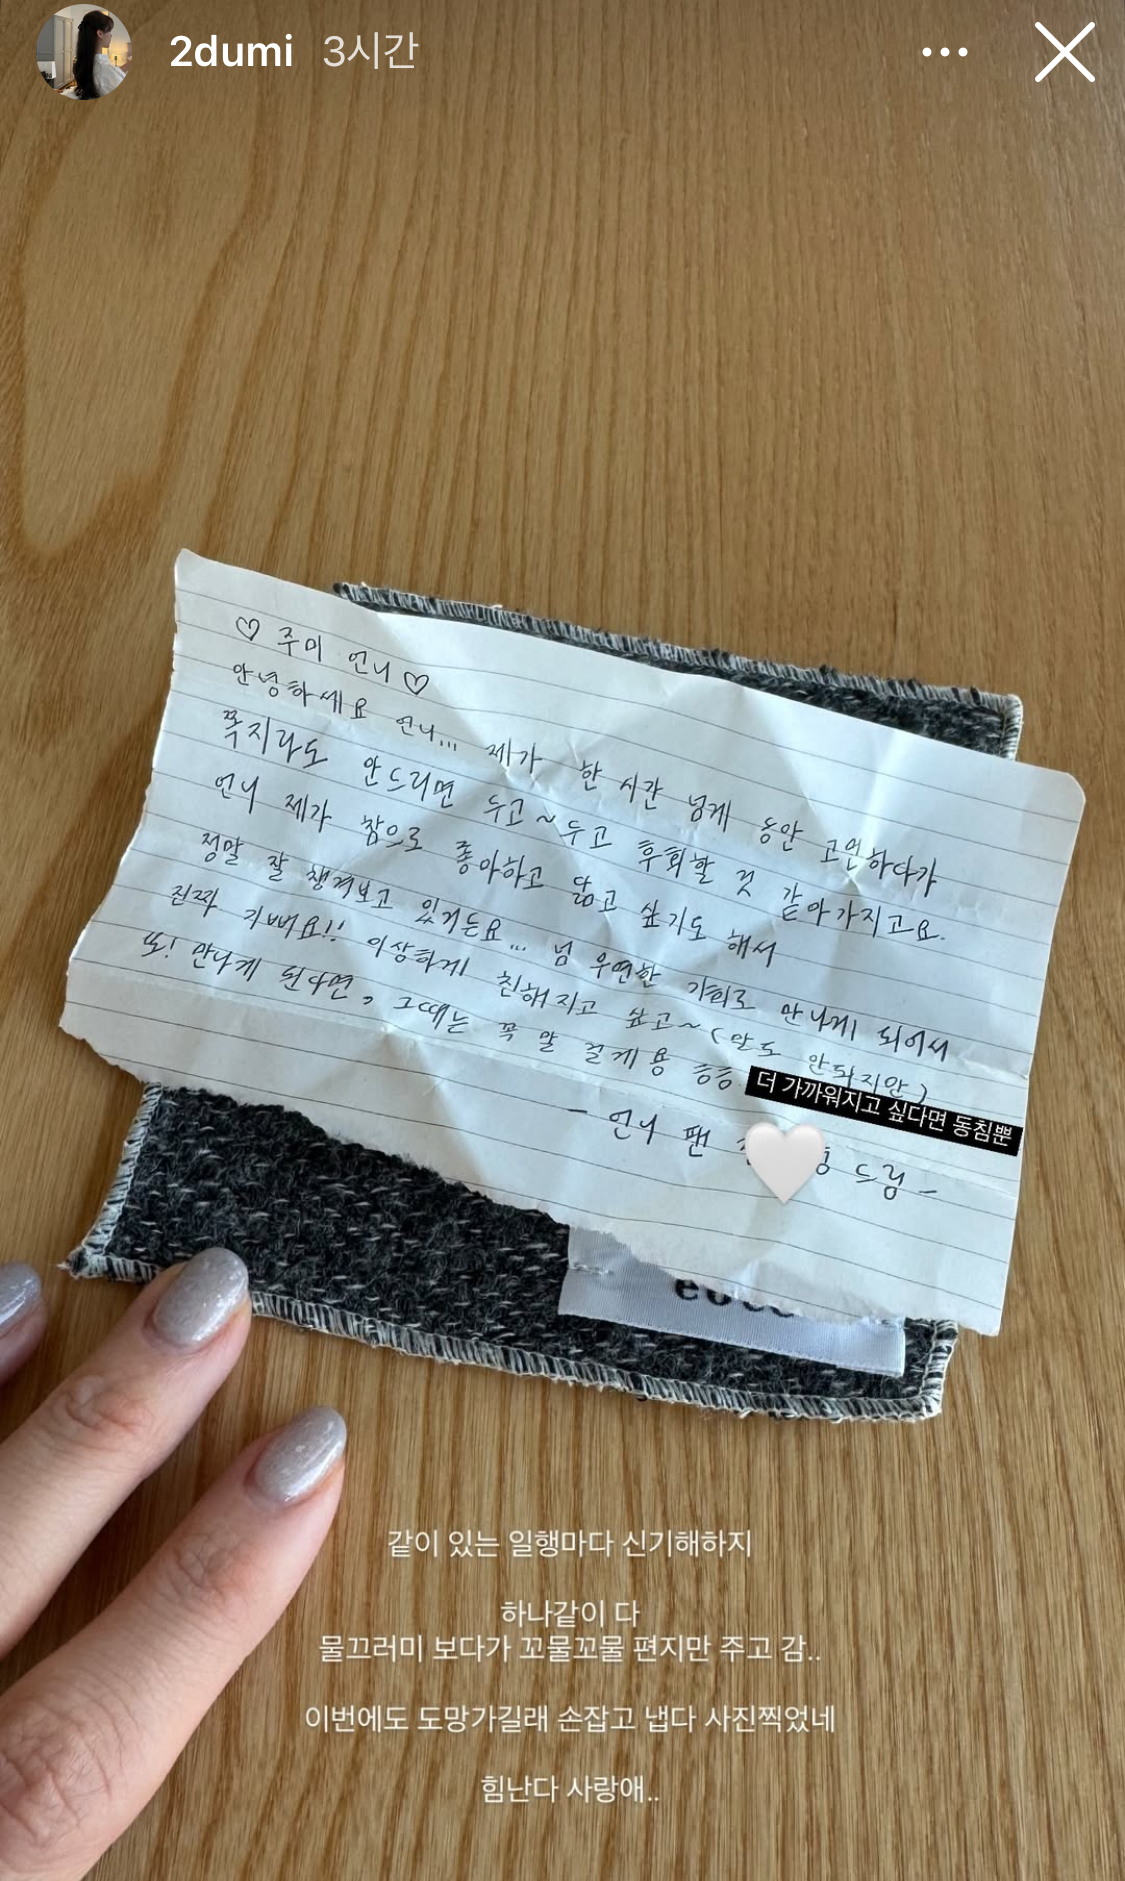 2dumi 3시간
♡ 주미 언니 ♡
안녕하세요 언니... 제가 한 시간 넘게 동안 고민하다가
쪽지라도 안드리면 두고~두고 후회할 것 같아가지고요.
언니 제가 참으로 좋아하고 닮고 싶기도 해서
정말 잘 챙겨보고 있거든요... 넘 우연한 기회로 만나게 되어서
진짜 기뻐요!! 이상하게 친해지고 싶고~ (말도 안돼지만)
또! 만나게 된다면, 그때는 꼭 말 걸게용 ㅎㅎ
더 가까워지고 싶다면 동침뿐
- 언니 팬 드림 -
같이 있는 일행마다 신기해하지
하나같이 다
물끄러미 보다가 꼬물꼬물 편지만 주고 감..
이번에도 도망가길래 손잡고 냅다 사진찍었네
힘난다 사랑애..